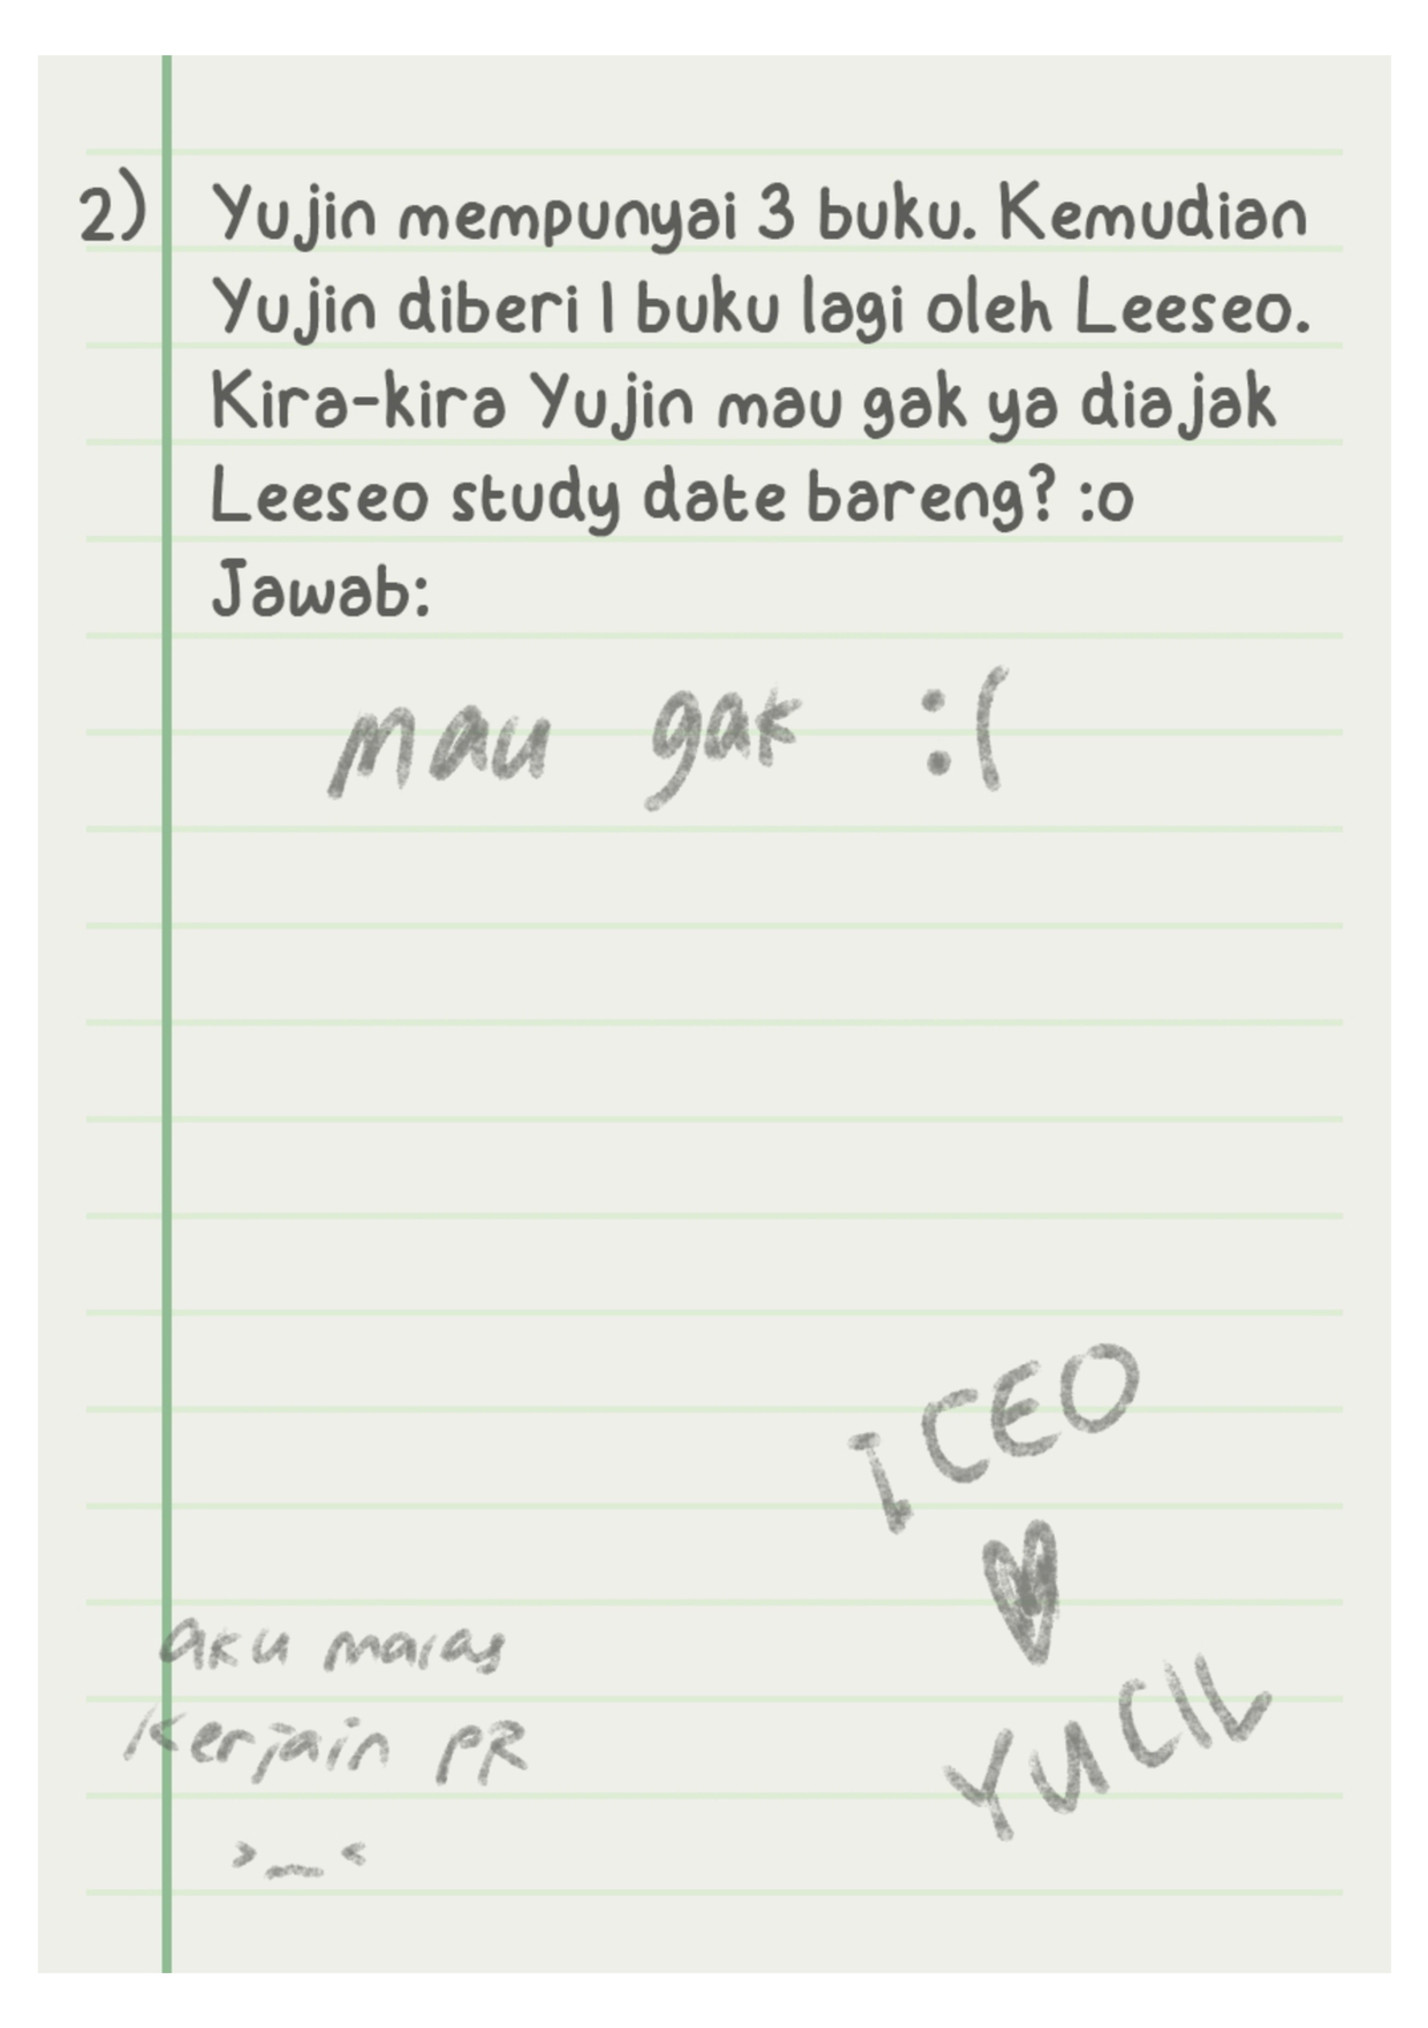 2) Yujin mempunyai 3 buku. Kemudian
Yujin diberi 1 buku lagi oleh Leeseo.
Kira-kira Yujin mau gak ya diajak
Leeseo study date bareng? :o
Jawab:
mau gak :(
I CEO
♥
YUCIL
aku malas
kerjain PR
>_<